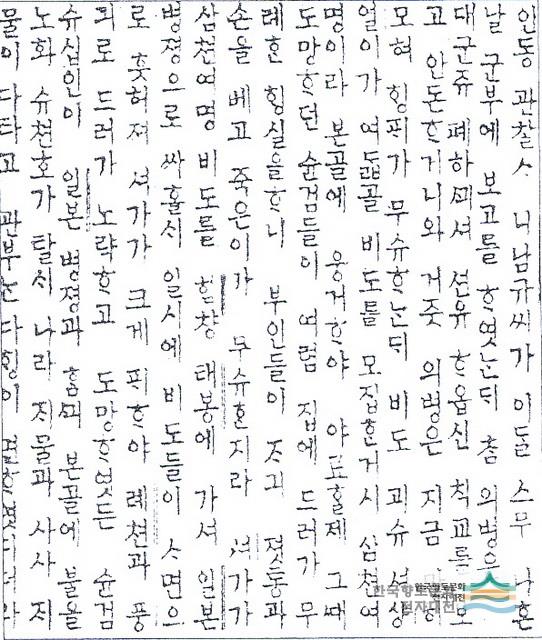 인동 관찰ᄉ 니남규씨가 이돌 스무 혼
날 군부에 보고를 ᄒᆞ엿ᄂᆞᆫᄃᆡ 춤 의병으
대군쥬 폐하ᄭᅴ셔 션유ᄒᆞ옵신 칙교를
고 안돈ᄒᆞ거니와 거즛 의병은 지금
모혀 ᄒᆡᆼ픠가 무슈ᄒᆞᄂᆞᆫᄃᆡ 비도 괴슈 셔상
열이가 여ᄃᆞᆲ골 비도를 모집ᄒᆞᆫ거시 삼쳔여
명이라 본골에 웅거ᄒᆞ야 야료홀제 그ᄯᅢ
도망ᄒᆞ던 슌검들이 여렴 집에 드러가 무
례ᄒᆞᆫ ᄒᆡᆼ실을ᄒᆞ니 부인들이 ᄌᆞ긔 졋통과
손을 베고 죽은이가 무슈ᄒᆞᆫ지라 셔가가
삼쳔여명 비도를 함창 태봉에 가셔 일본
병졍으로 싸홀ᄉᆡ 일시에 비도들이 ᄉᆞ면으
로 흣허져 셔가가 크게 픽ᄒᆞ야 례쳔과 풍
긔로 드러가 노략ᄒᆞ고 도망ᄒᆞ엿ᄂᆞᆫ 슌검
슈십인이 일본 병졍과 홈ᄭᅴ 본골에 불을
노화 슈쳔호가 탈ᄉᆡ 나라 ᄌᆡ물과 사사 ᄌᆡ
물이 다타고 관부ᄂᆞᆫ 다ᄒᆡᆼ이
한국향토문화
전자대전